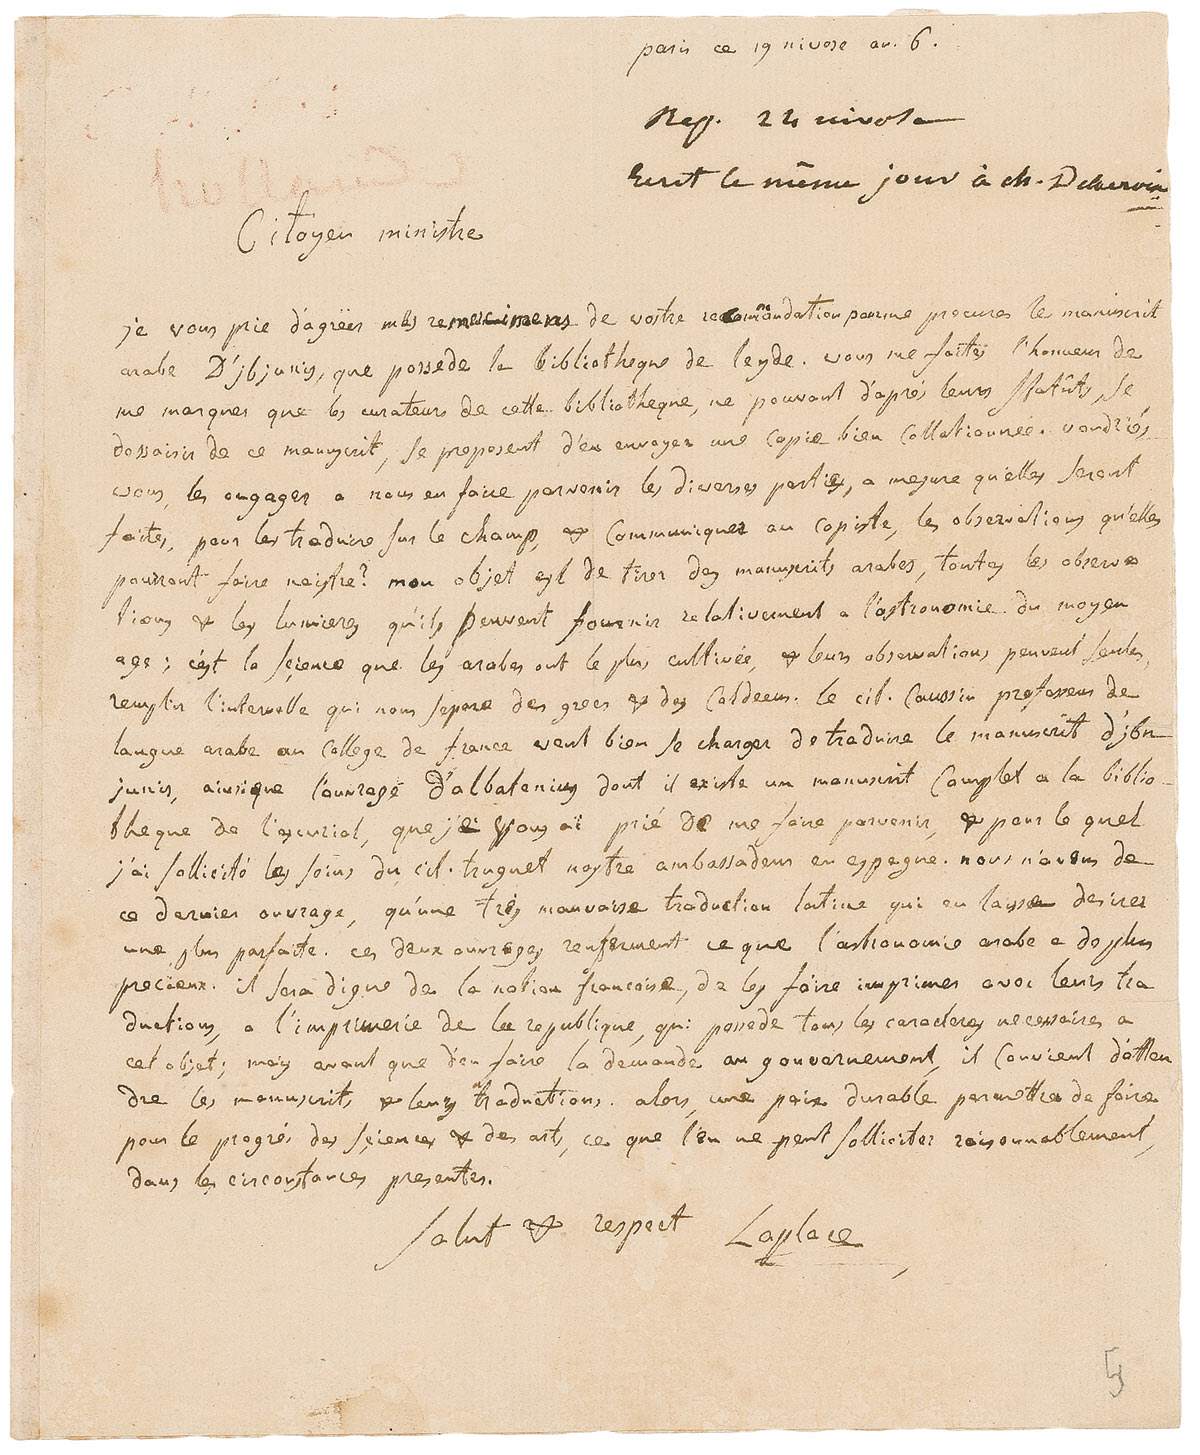 paris ce 19 nivose an. 6.
Rep. 24 nivose
Ecrit le même jour à ch.
Citoyen ministre
je vous prie d'agréer mes remercimens de vostre recommandation pour me procurer le manuscrit
arabe D'jbjunis, que possede la bibliotheque de leyde. vous me faites l'honneur de
me marquer que les curateurs de cette bibliotheque, ne pouvant d'après leurs statûts, se
dessaisir de ce manuscrit, se proposent d'en envoyer une copie bien collationnée. voudriés
vous, les engager a nous en faire parvenir les diverses parties, a mesure qu'elles seront
faites, pour les traduire sur le champ, & communiquer au copiste, les observations qu'elles
pourront faire naistre? mon objet est de tirer des manuscrits arabes, toutes les observa
tions & les lumieres qu'ils peuvent fournir relativement a l'astronomie du moyen
age; c'est la science que les arabes ont le plus cultivée, & leurs observations peuvent seules,
remplir l'intervalle qui nous separe des grecs & des Caldeens. le cit. Caussin professeur de
langue arabe au college de france veut bien se charger de traduire le manuscrit d'jbn
junis, ainsique l'ouvrage D'albatenius dont il existe un manuscrit complet a la biblio-
theque de l'escurial, que je vous ai prié de me faire parvenir, & pour le quel
j'ai sollicité les soins du cit. truguet nostre ambassadeur en espagne. nous n'avons de
ce dernier ouvrage, qu'une très mauvaise traduction latine qui en laisse desirer
une plus parfaite. ces deux ouvrages renferment ce que l'astronomie arabe a de plus
precieux. il sera digne de la nation françoise, de les faire imprimer avec leurs tra
ductions, a l'imprimerie de la republique, qui possede tous les caracteres necessaires a
cet objet; mais avant que d'en faire la demande au gouvernement, il convient d'atten
dre les manuscrits & leurs traductions. alors, une paix durable permettra de faire
pour le progrés des sciences & des arts, ce que l'on ne peut solliciter raisonnablement,
dans les circonstances presentes.
salut & respect Laplace
5